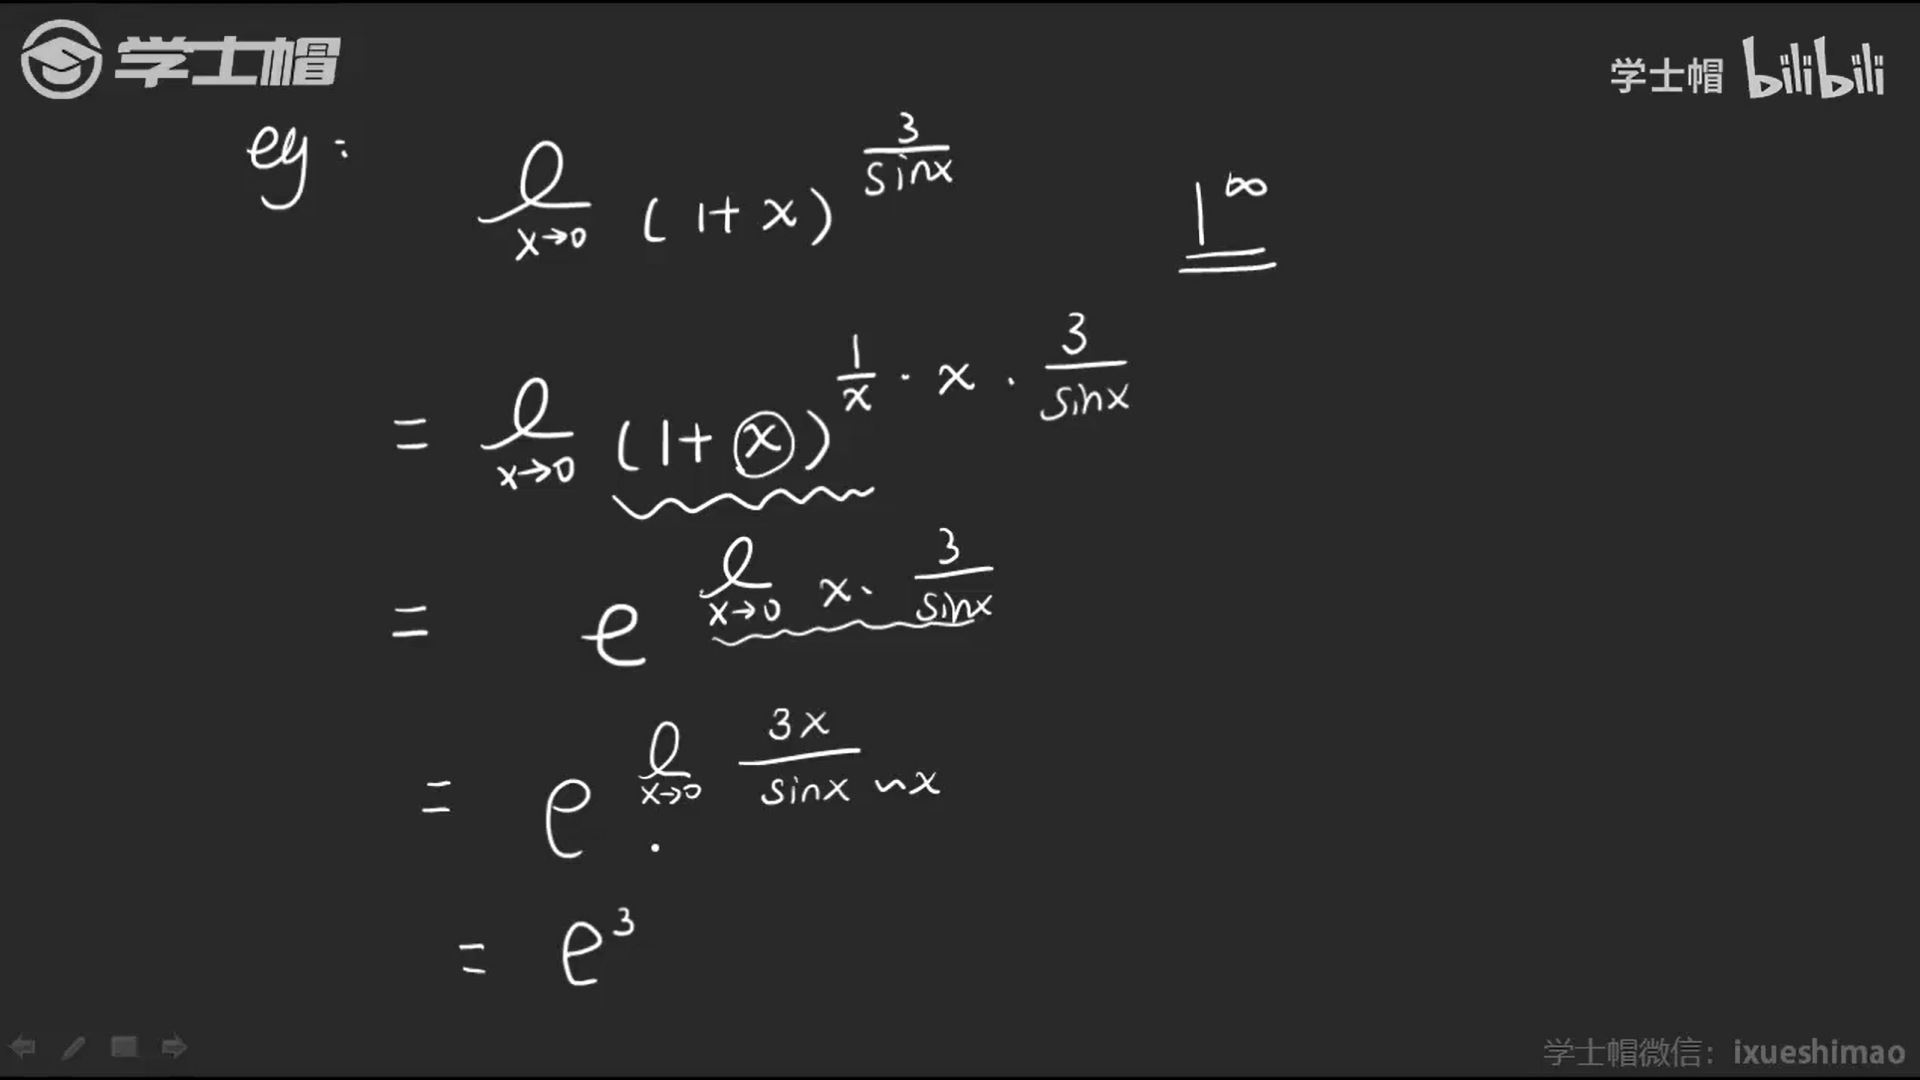 学士帽
学士帽 bilibili
eg: l x→0 (1+x)^(3/sinx) 1^∞
= l x→0 (1+x)^(1/x · x · 3/sinx)
= e^(l x→0 x· 3/sinx)
= e^(l x→0 3x/sinx ~x)
= e^3
学士帽微信：ixueshimao